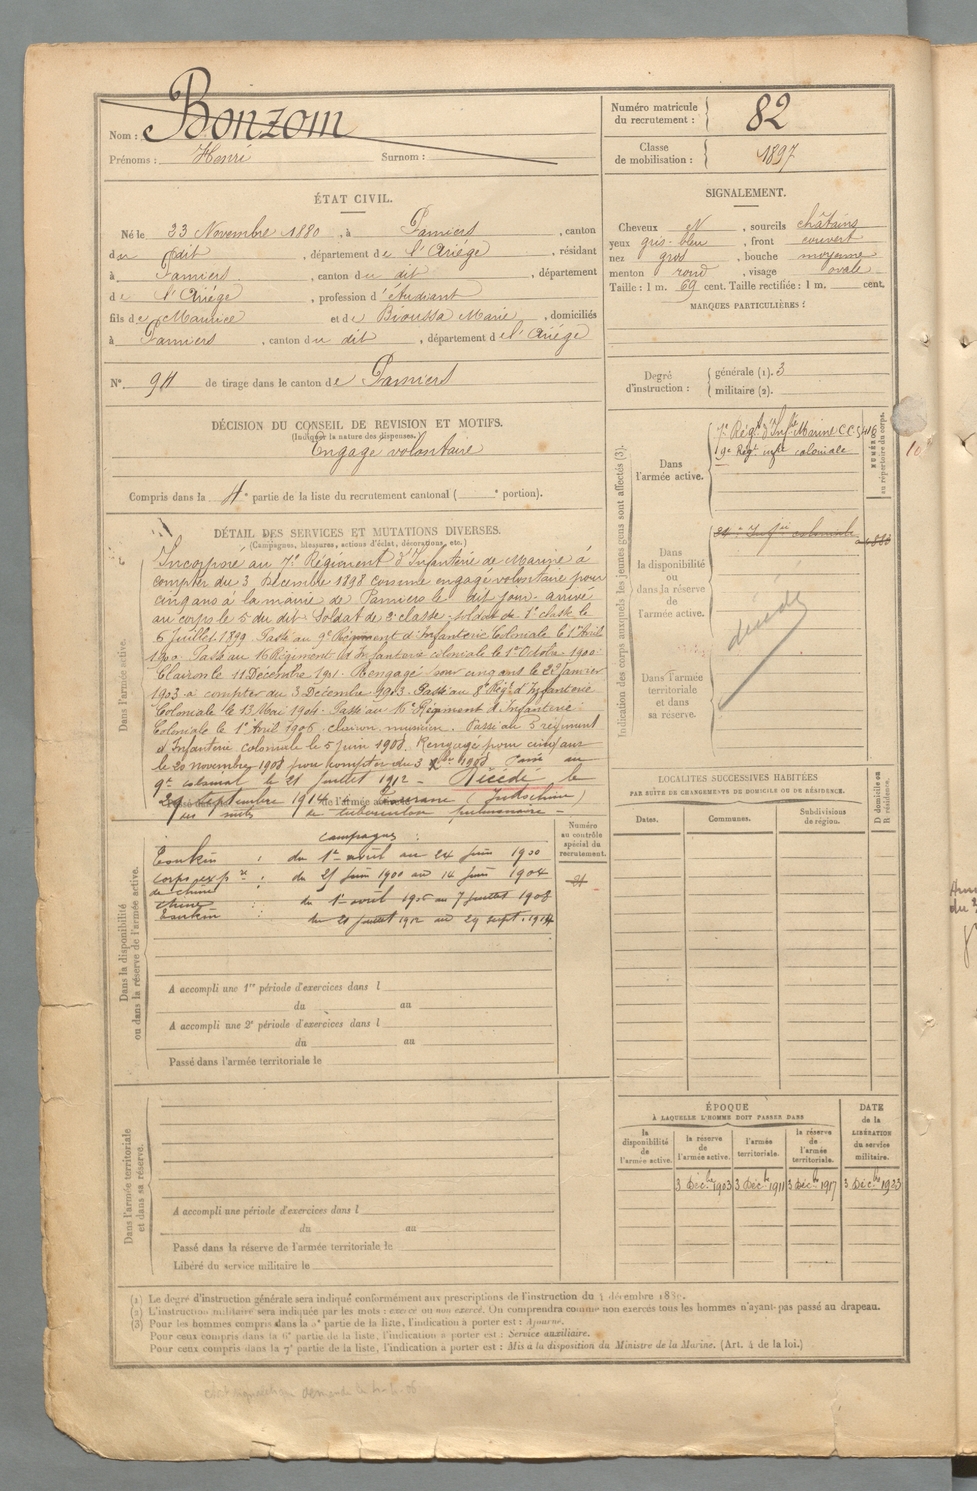 Nom : Bonzom
Prénoms : Henri Surnom :
Numéro matricule du recrutement : 82
Classe de mobilisation : 1897
ÉTAT CIVIL.
Né le 23 Novembre 1880, à Pamiers, canton
du dit, département de l'Ariège, résidant
à Pamiers, canton du dit, département
de l'Ariège, profession d'étudiant
fils de Maurice et de Bioussa Marie, domiciliés
à Pamiers, canton du dit, département de l'Ariège
N° 94 de tirage dans le canton de Pamiers
SIGNALEMENT.
Cheveux N, sourcils châtains
yeux gris-bleu, front couvert
nez gros, bouche moyenne
menton rond, visage ovale
Taille : 1 m. 69 cent. Taille rectifiée : 1 m. cent.
MARQUES PARTICULIÈRES :
Degré d'instruction : générale (1). 3
militaire (2).
DÉCISION DU CONSEIL DE REVISION ET MOTIFS.
(Indiquer la nature des dispenses.)
Engagé volontaire
Compris dans la 4e partie de la liste du recrutement cantonal ( e portion).
DÉTAIL DES SERVICES ET MUTATIONS DIVERSES.
(Campagnes, blessures, actions d'éclat, décorations, etc.)
Dans l'armée active.
Incorporé au 7e Régiment d'Infanterie de Marine à
compter du 3 Décembre 1898 comme engagé volontaire pour
cinq ans à la mairie de Pamiers le dit jour. arrivé
au corps le 5 du dit. Soldat de 2e classe. soldat de 1e classe le
6 Juillet 1899. Passé au 9e Régiment d'Infanterie Coloniale le 1er Avril
1900. Passé au 16 Régiment d'Infanterie coloniale le 1er Octobre 1900.
Clairon le 11 Décembre 1901. Rengagé pour cinq ans le 22 Janvier
1903 à compter du 3 Décembre 1903. Passé au 8e Régt d'Infanterie
Coloniale le 13 Mai 1904. Passé au 16e Régiment d'Infanterie
Coloniale le 1er Avril 1906, clairon musicien. Passé au 5 régiment
d'Infanterie coloniale le 5 juin 1908. Rengagé pour cinq ans
le 20 novembre 1908 pour compter du 3 Xbre 1908 Passé au
9e colonial le 21 juillet 1912 – Décédé le
29 septembre 1914 à (Indochine)
des suites de tuberculose pulmonaire –
Dans la disponibilité ou dans la réserve de l'armée active.
Campagnes :
Tonkin : du 1er avril au 24 juin 1900
corps exp re de chine : du 25 juin 1900 au 14 juin 1904
chine : du 1er avril 1906 au 7 juillet 1908
Tonkin : du 21 juillet 1912 au 29 sept. 1914
Numéro au contrôle spécial du recrutement.
A accompli une 1re période d'exercices dans l
du au
A accompli une 2e période d'exercices dans l
du au
Passé dans l'armée territoriale le
Dans l'armée territoriale et dans sa réserve.
A accompli une période d'exercices dans l
du au
Passé dans la réserve de l'armée territoriale le
Libéré du service militaire le
Indication des corps auxquels les jeunes gens sont affectés (3).
Dans l'armée active.
7e Régt d'Infie Marine C.C. 5416
9e Régt infie coloniale
NUMÉROS au répertoire du corps.
Dans la disponibilité ou dans la réserve de l'armée active.
décédé
Dans l'armée territoriale et dans sa réserve.
LOCALITÉS SUCCESSIVES HABITÉES
PAR SUITE DE CHANGEMENTS DE DOMICILE OU DE RÉSIDENCE.
Dates. Communes. Subdivisions de région. D domicile ou R résidence.
ÉPOQUE
À LAQUELLE L'HOMME DOIT PASSER DANS
la disponibilité de l'armée active. la réserve de l'armée active. l'armée territoriale. la réserve de l'armée territoriale.
DATE de la LIBÉRATION du service militaire.
3 Décbre 1903 3 Décbre 1911 3 Décbre 1917 3 Décbre 1923
(1) Le degré d'instruction générale sera indiqué conformément aux prescriptions de l'instruction du 4 décembre 1889.
(2) L'instruction militaire sera indiquée par les mots : exercé ou non exercé. On comprendra comme non exercés tous les hommes n'ayant pas passé au drapeau.
(3) Pour les hommes compris dans la 5e partie de la liste, l'indication à porter est : Ajourné.
Pour ceux compris dans la 6e partie de la liste, l'indication à porter est : Service auxiliaire.
Pour ceux compris dans la 7e partie de la liste, l'indication à porter est : Mis à la disposition du Ministre de la Marine. (Art. 4 de la loi.)